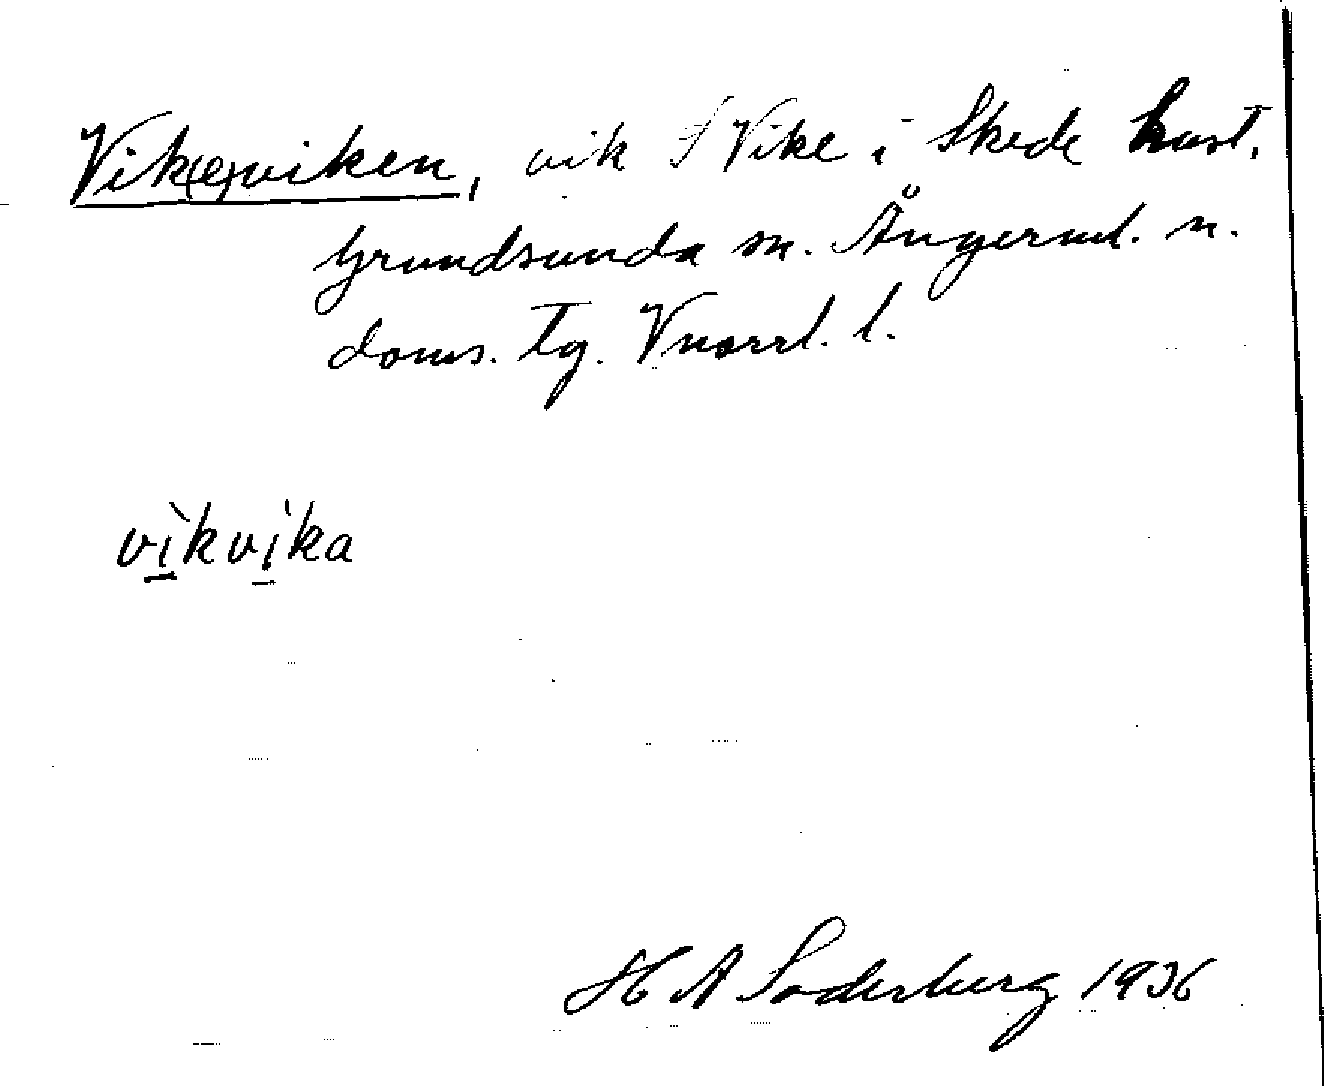 Vik(e)viken, vik S Vike i Skede by
Grundsunda sn. Ångerml. n.
doms. tg. Vnorrl. l.
vìkvika
H A Söderberg 1936